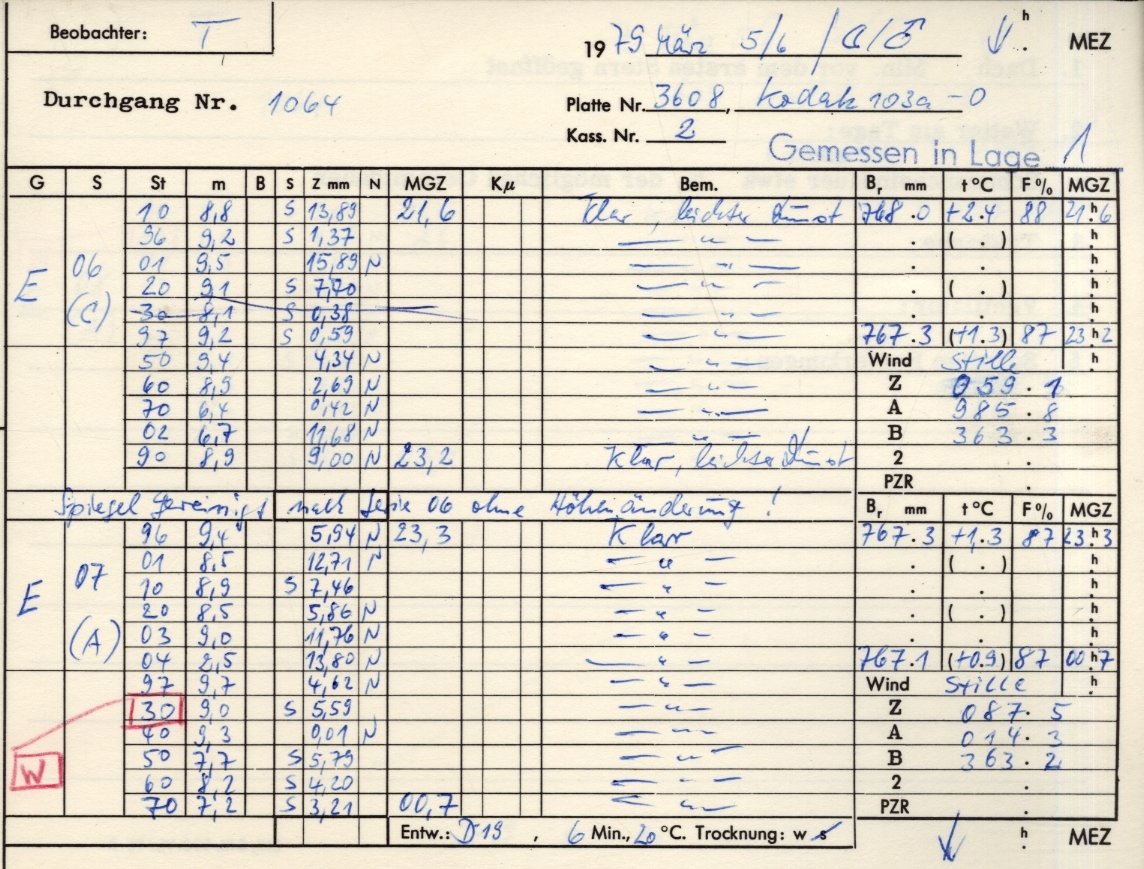 Beobachter: T
1979 März 5/6 / ☾/♂ h MEZ
Durchgang Nr. 1064
Platte Nr. 3608, Kodak 103a-O
Kass. Nr. 2
Gemessen in Lage 1
G S St m B S Z mm N MGZ Kμ Bem. Br mm t °C F % MGZ
10 8,8 S 13,89 21,6 Klar, leichter Dunst 768.0 +2.4 88 21h6
96 9,2 S 1,37 — " — . ( . ) h
E 06 (C) 01 9,5 15,89 N — " — . . h
20 9,1 S 7,70 — " — . ( . ) h
30 8,1 S 0,38 — " — . .
97 9,2 S 0,59 — " — 767.3 (+1.3) 87 23h2
50 9,4 4,34 N — " — Wind Stille h
60 8,9 2,69 N — " — Z 059.1
70 6,4 0,42 N — " — A 985.8
02 6,7 11,68 N — " — B 363.3
90 8,9 9,00 N 23,2 Klar, leichter Dunst 2 .
PZR
Spiegel gereinigt nach Serie 06 ohne Höhenänderung! Br mm t °C F % MGZ
96 9,4 5,94 N 23,3 Klar 767.3 +1.3 87 23h3
01 8,5 12,71 N — " — . ( . ) h
E 07 (A) 10 8,9 S 7,46 — " — . . h
20 8,5 5,86 N — " — . ( . ) h
03 9,0 11,76 N — " — . . h
04 8,5 13,80 N — " — 767.1 (+0.9) 87 00h7
97 9,7 4,62 N — " — Wind Stille h
30 9,0 S 5,59 — " — Z 087.5
40 9,3 0,01 N — " — A 014.3
W 50 7,7 S 5,79 — " — B 363.2
60 8,2 S 4,20 — " — 2 .
70 7,2 S 3,21 00,7 — " — PZR .
Entw.: D19, 6 Min., 20 °C. Trocknung: w s h MEZ